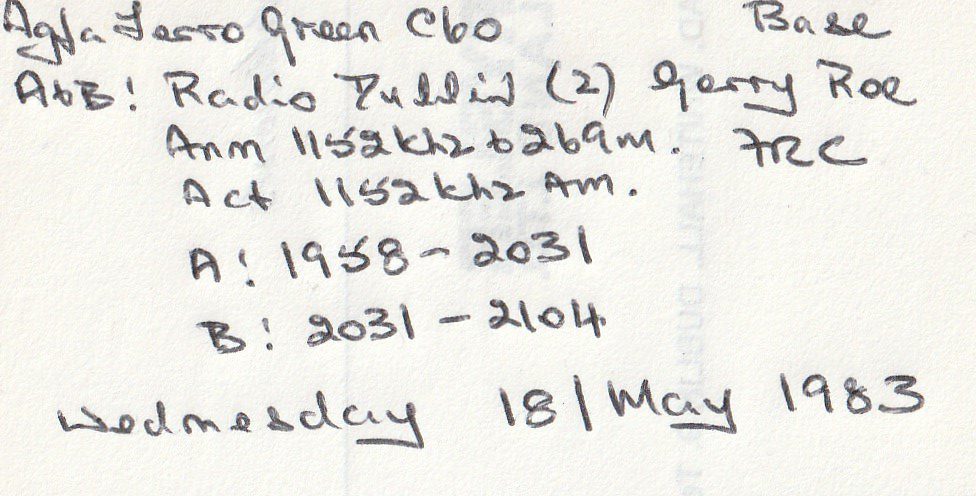 Agfa Ferro Green C60 Base
A+B: Radio Dublin (2) Gerry Roe
Ann 1152khz + 269m. FRC
Act 1152khz Am.
A: 1958 - 2031
B: 2031 - 2104
Wednesday 18/May 1983